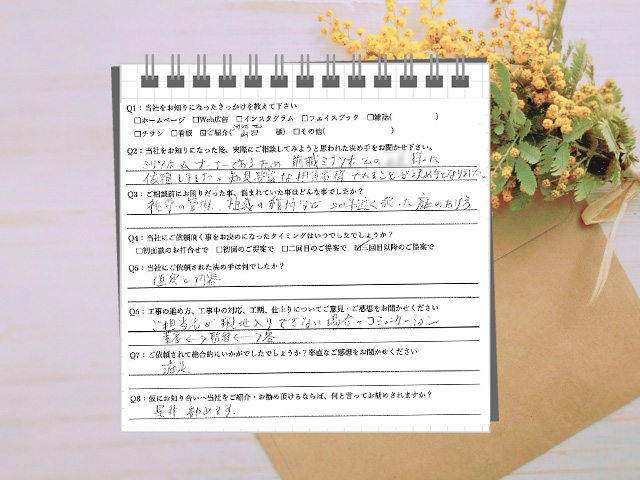 Q1：当社をお知りになったきっかけを教えて下さい
□ホームページ □Web広告 □インスタグラム □フェイスブック □雑誌( )
□チラシ □看板 ☑ご紹介( 山西 様) □その他( )
Q2：当社をお知りになった後、実際にご相談してみようと思われた決め手をお聞かせ下さい。
ミサワホームオーナーであるため 前職ミサワホームの 様に
依頼しました。お見堅実な担当者様であることが決め手となりました。
Q3：ご相談前にお困りだった事、悩まれていた事はどんな事でしたか？
雑草の管理、植栽の維持など 20年近く経った庭のあり方
Q4：当社にご依頼頂く事をお決めになったタイミングはいつでしたでしょうか？
□初面談のお打合せで □初回のご提案で □二回目のご提案で ☑三回目以降のご提案で
Q5：当社にご依頼された決め手は何でしたか？
値段と内容
Q6：工事の進め方、工事中の対応、工期、仕上りについてご意見・ご感想をお聞かせください
ご担当者が現地入りできない場合のコミュニケーション
業者<->監督<->客
Q7：ご依頼されて総合的にいかがでしたでしょうか？率直なご感想をお聞かせください
満足
Q8：仮にお知り合いへ当社をご紹介・お勧め頂けるならば、何と言ってお勧めされますか？
是非 勧めます。